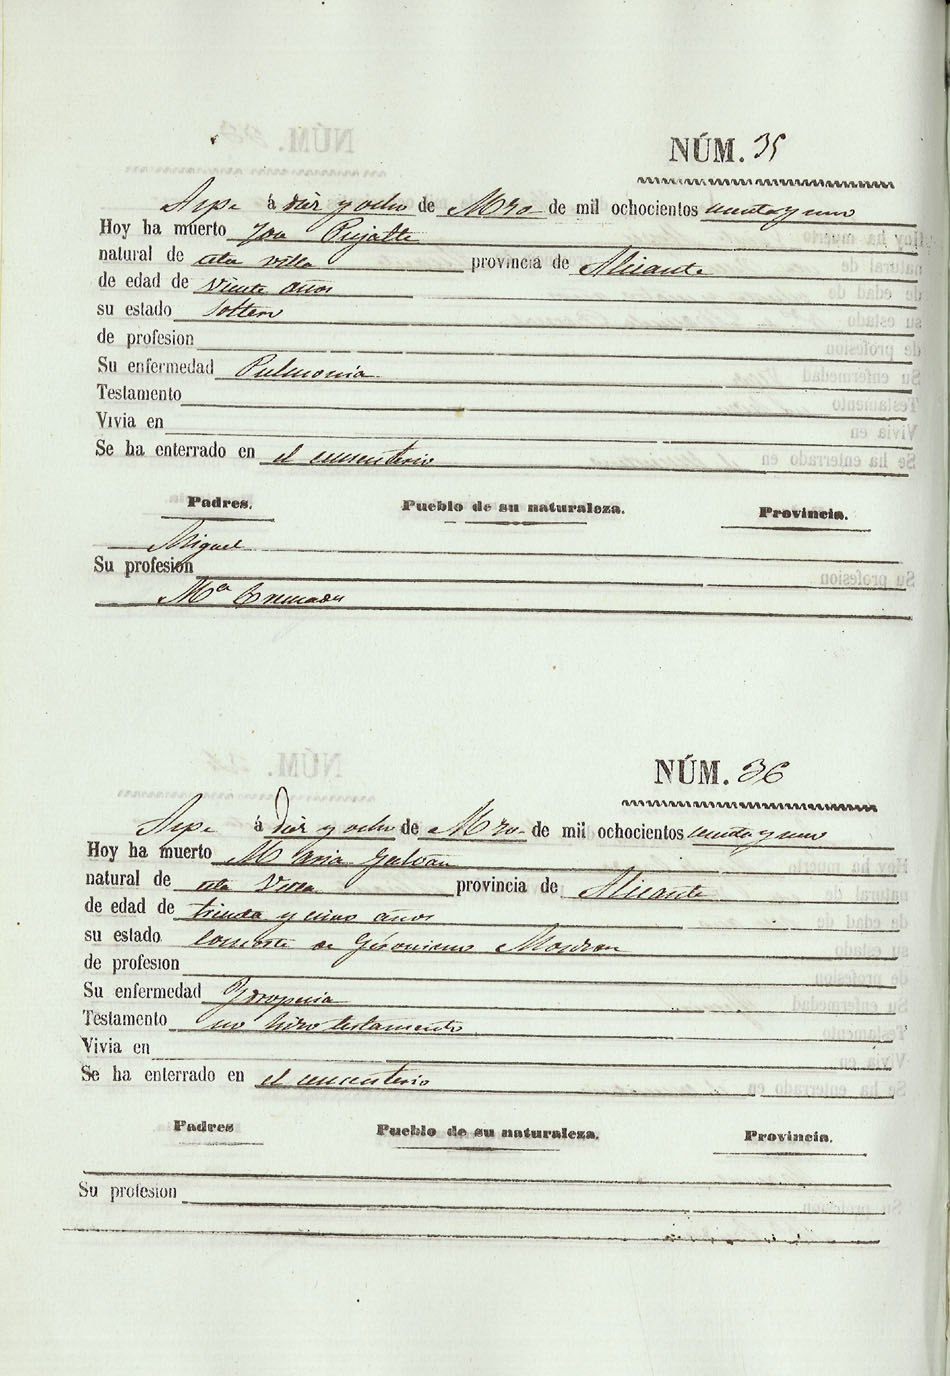 NÚM. 35
Aspe á diez y ocho de Mzo de mil ochocientos
Hoy ha muerto Pujalte
natural de esta villa provincia de Alicante
de edad de veinte años
su estado soltero
de profesion
Su enfermedad Pulmonía
Testamento
Vivia en
Se ha enterrado en el cementerio
Padres. Pueblo de su naturaleza. Provincia.
Miguel
Su profesion
Mª Cremades
NÚM. 36
Aspe á diez y ocho de Mzo de mil ochocientos
Hoy ha muerto Maria Galvañ
natural de esta Villa provincia de Alicante
de edad de treinta y cinco años
su estado consorte de Géronimo
de profesion
Su enfermedad
Testamento no hizo testamento
Vivia en
Se ha enterrado en el cementerio
Padres Pueblo de su naturaleza. Provincia.
Su profesion